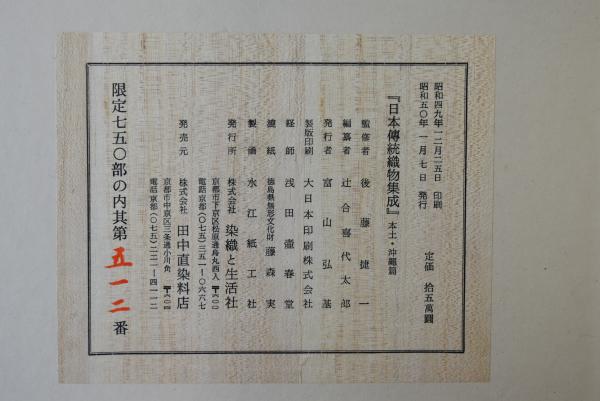 昭和四九年一二月二五日 印刷
昭和五〇年 一月 七日 発行
定価 拾五萬圓
『日本傳統織物集成』本土・沖縄篇
監修者 後藤捷一
編纂者 辻合喜代太郎
発行者 富山弘基
製版印刷 大日本印刷株式会社
経師 浅田壷春堂
漉紙 徳島県無形文化財 藤森実
製函 水江紙工社
発行所 株式会社 染織と生活社
京都市下京区松原通烏丸西入 〒六〇〇
電話京都(〇七五)三五一―〇六六七
発売元 株式会社 田中直染料店
京都市中京区三条通小川角 〒六〇四
電話京都(〇七五)二二一―四一一二
限定七五〇部の内其第 五一二 番